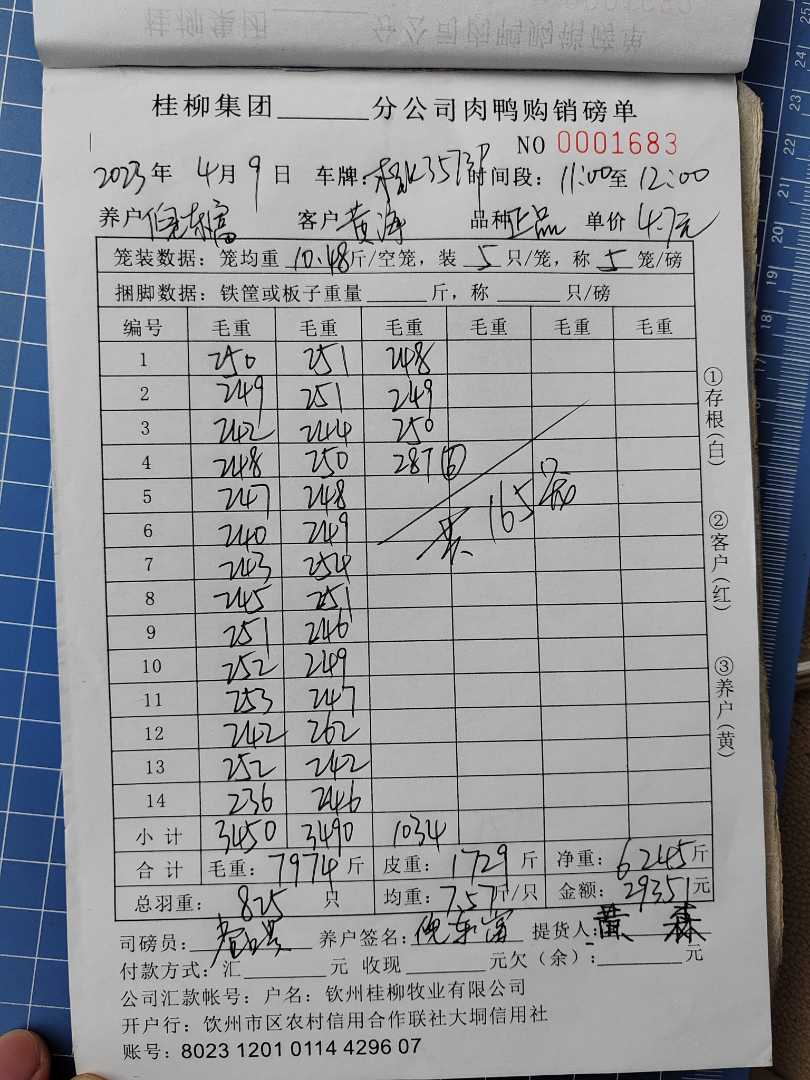 桂柳集团______分公司肉鸭购销磅单
NO 0001683
2023年 4月9日 车牌: 3573P 时间段: 11:00至 12:00
养户 倪东富 客户 黄海 品种 正品 单价 4.7元
笼装数据: 笼均重 10.48斤/空笼, 装 5 只/笼, 称 5 笼/磅
捆脚数据: 铁筐或板子重量______斤, 称______只/磅
编号 毛重 毛重 毛重 毛重 毛重 毛重
1 250 251 248
2 249 251 249
3 242 244 250
4 248 250 287(6)
5 247 248
6 240 249 共 165
7 243 254
8 245 251
9 251 246
10 252 249
11 253 247
12 242 262
13 252 242
14 236 246
小计 3450 3490 1034
合计 毛重: 7974斤 皮重: 1729斤 净重: 6245斤
总羽重: 825 只 均重: 7.57斤/只 金额: 29351元
司磅员: 养户签名: 倪东富 提货人: 黄 森
付款方式: 汇______元 收现______元欠(余): ______元
公司汇款帐号: 户名: 钦州桂柳牧业有限公司
开户行: 饮州市区农村信用合作联社大垌信用社
账号: 8023 1201 0114 4296 07
①存根(白)
②客户(红)
③养户(黄)